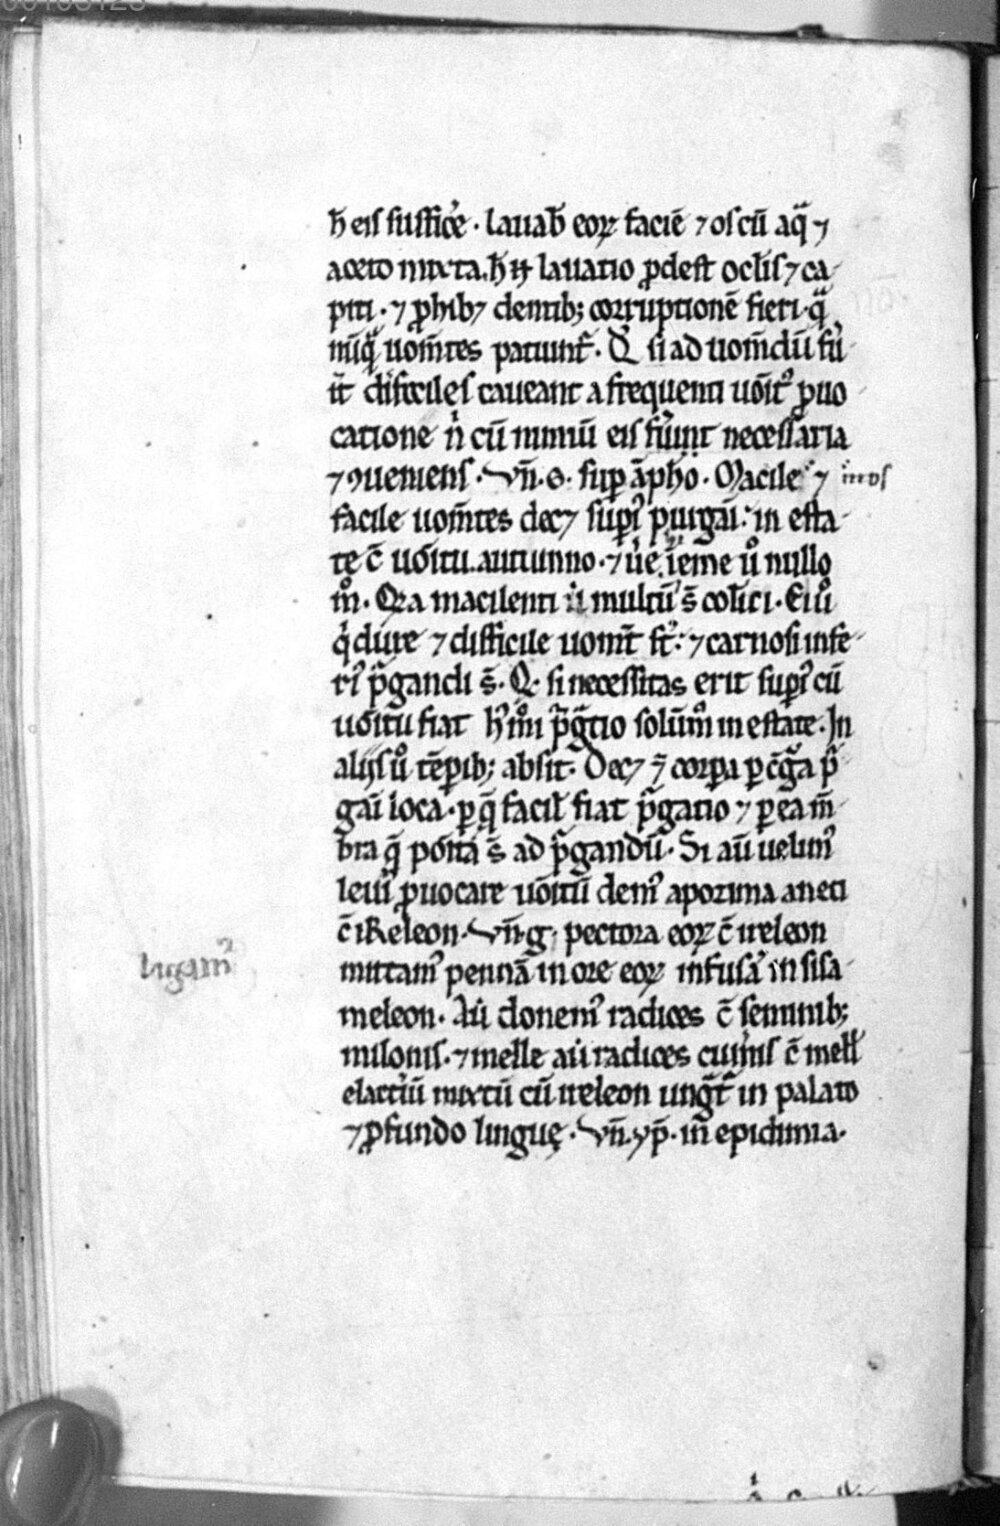 h̄ eis suffic̓e · lauab̄ eoꝝ faciē ⁊ os cū aq̄ ⁊
aceto mixta. h̄ lauatio ꝓdest ocl̄is ⁊ ca
piti · ⁊ ꝓhibꝫ dentibꝫ corruptionē fieri · q̄
nūq̄ uom̄tes patiunt̄ · Qꝺ si ad uom̄dū fu̓
it̄ difficiles caueant a frequenti uōit᷒ ꝓuo
catione n̓ cū nimiū eis fu̓int necessaria
⁊ ꝯueniens · vn̄ · G · sup āpho · Macile ⁊
facile uom̄tes decꝫ sup̱i᷒ purgāi · in esta
te c̄ uōitu. autumno · ⁊ ue̓. ieme ŭ nullo
m̊ · Qꝛa macilenti multū s̄ col̄ici · Ei ŭ
q̓ dure ⁊ difficile uomt̄ · ⁊ carnosi infe
ri᷒ p̄gandi s̄ · Qꝺ si necessitas erit sup̱i᷒ cū
uōitu fiat p̄g̃tio solūm̊ in estate · In
alijs ŭ tēp̱ibꝫ absit · Decꝫ corp̱a ꝑ c̄g̃a p̄
gāi loca · ꝑ q̄ facil̄ fiat p̄gatio ⁊ ꝑ ea m̄
bra q̄ poīta s̄ ad p̄gandū · Si aū uelim᷒
leuit̓ ꝓuocare uōitū dem᷒ apozima aneti
c̄ ireleon · vn̄ · g · pectora eoꝝ c̄ ireleon
ligam᷒
mittam᷒ pennā in ore eoꝝ infusā in sisa
meleon · Au̓ donem᷒ radices c̄ seminibꝫ
milonis · ⁊ melle au̓ radices cim̓is c̄ mell̄
elact̓iū mixtū cū ireleon ung̃t̄ in palato
⁊ ꝓfundo linguę · vn̄. yp̄ · in̄ epidimia ·